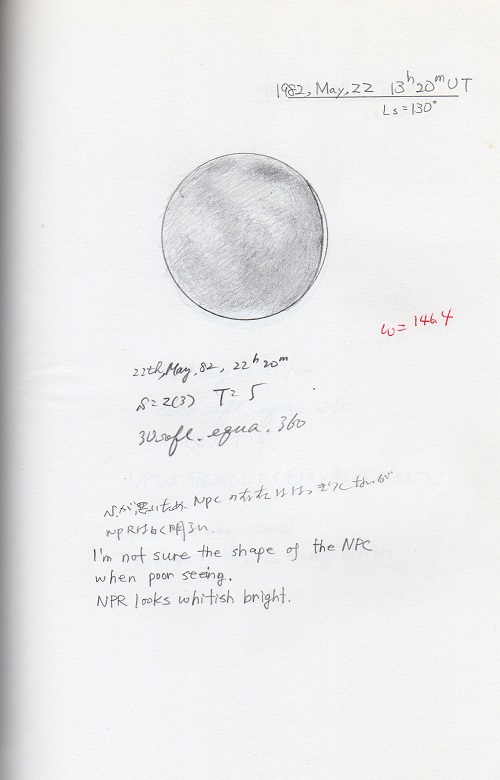 1982, May, 22 13h20m UT
Ls=130°
ω=146.4
22th, May, 82, 22h20m
S=2(3) T=5
30 refl. equa. 360
Sが悪いため、NPCの存在ははっきりしないが
NPRは白く明るい.
I'm not sure the shape of the NPC
when poor seeing.
NPR looks whitish bright.